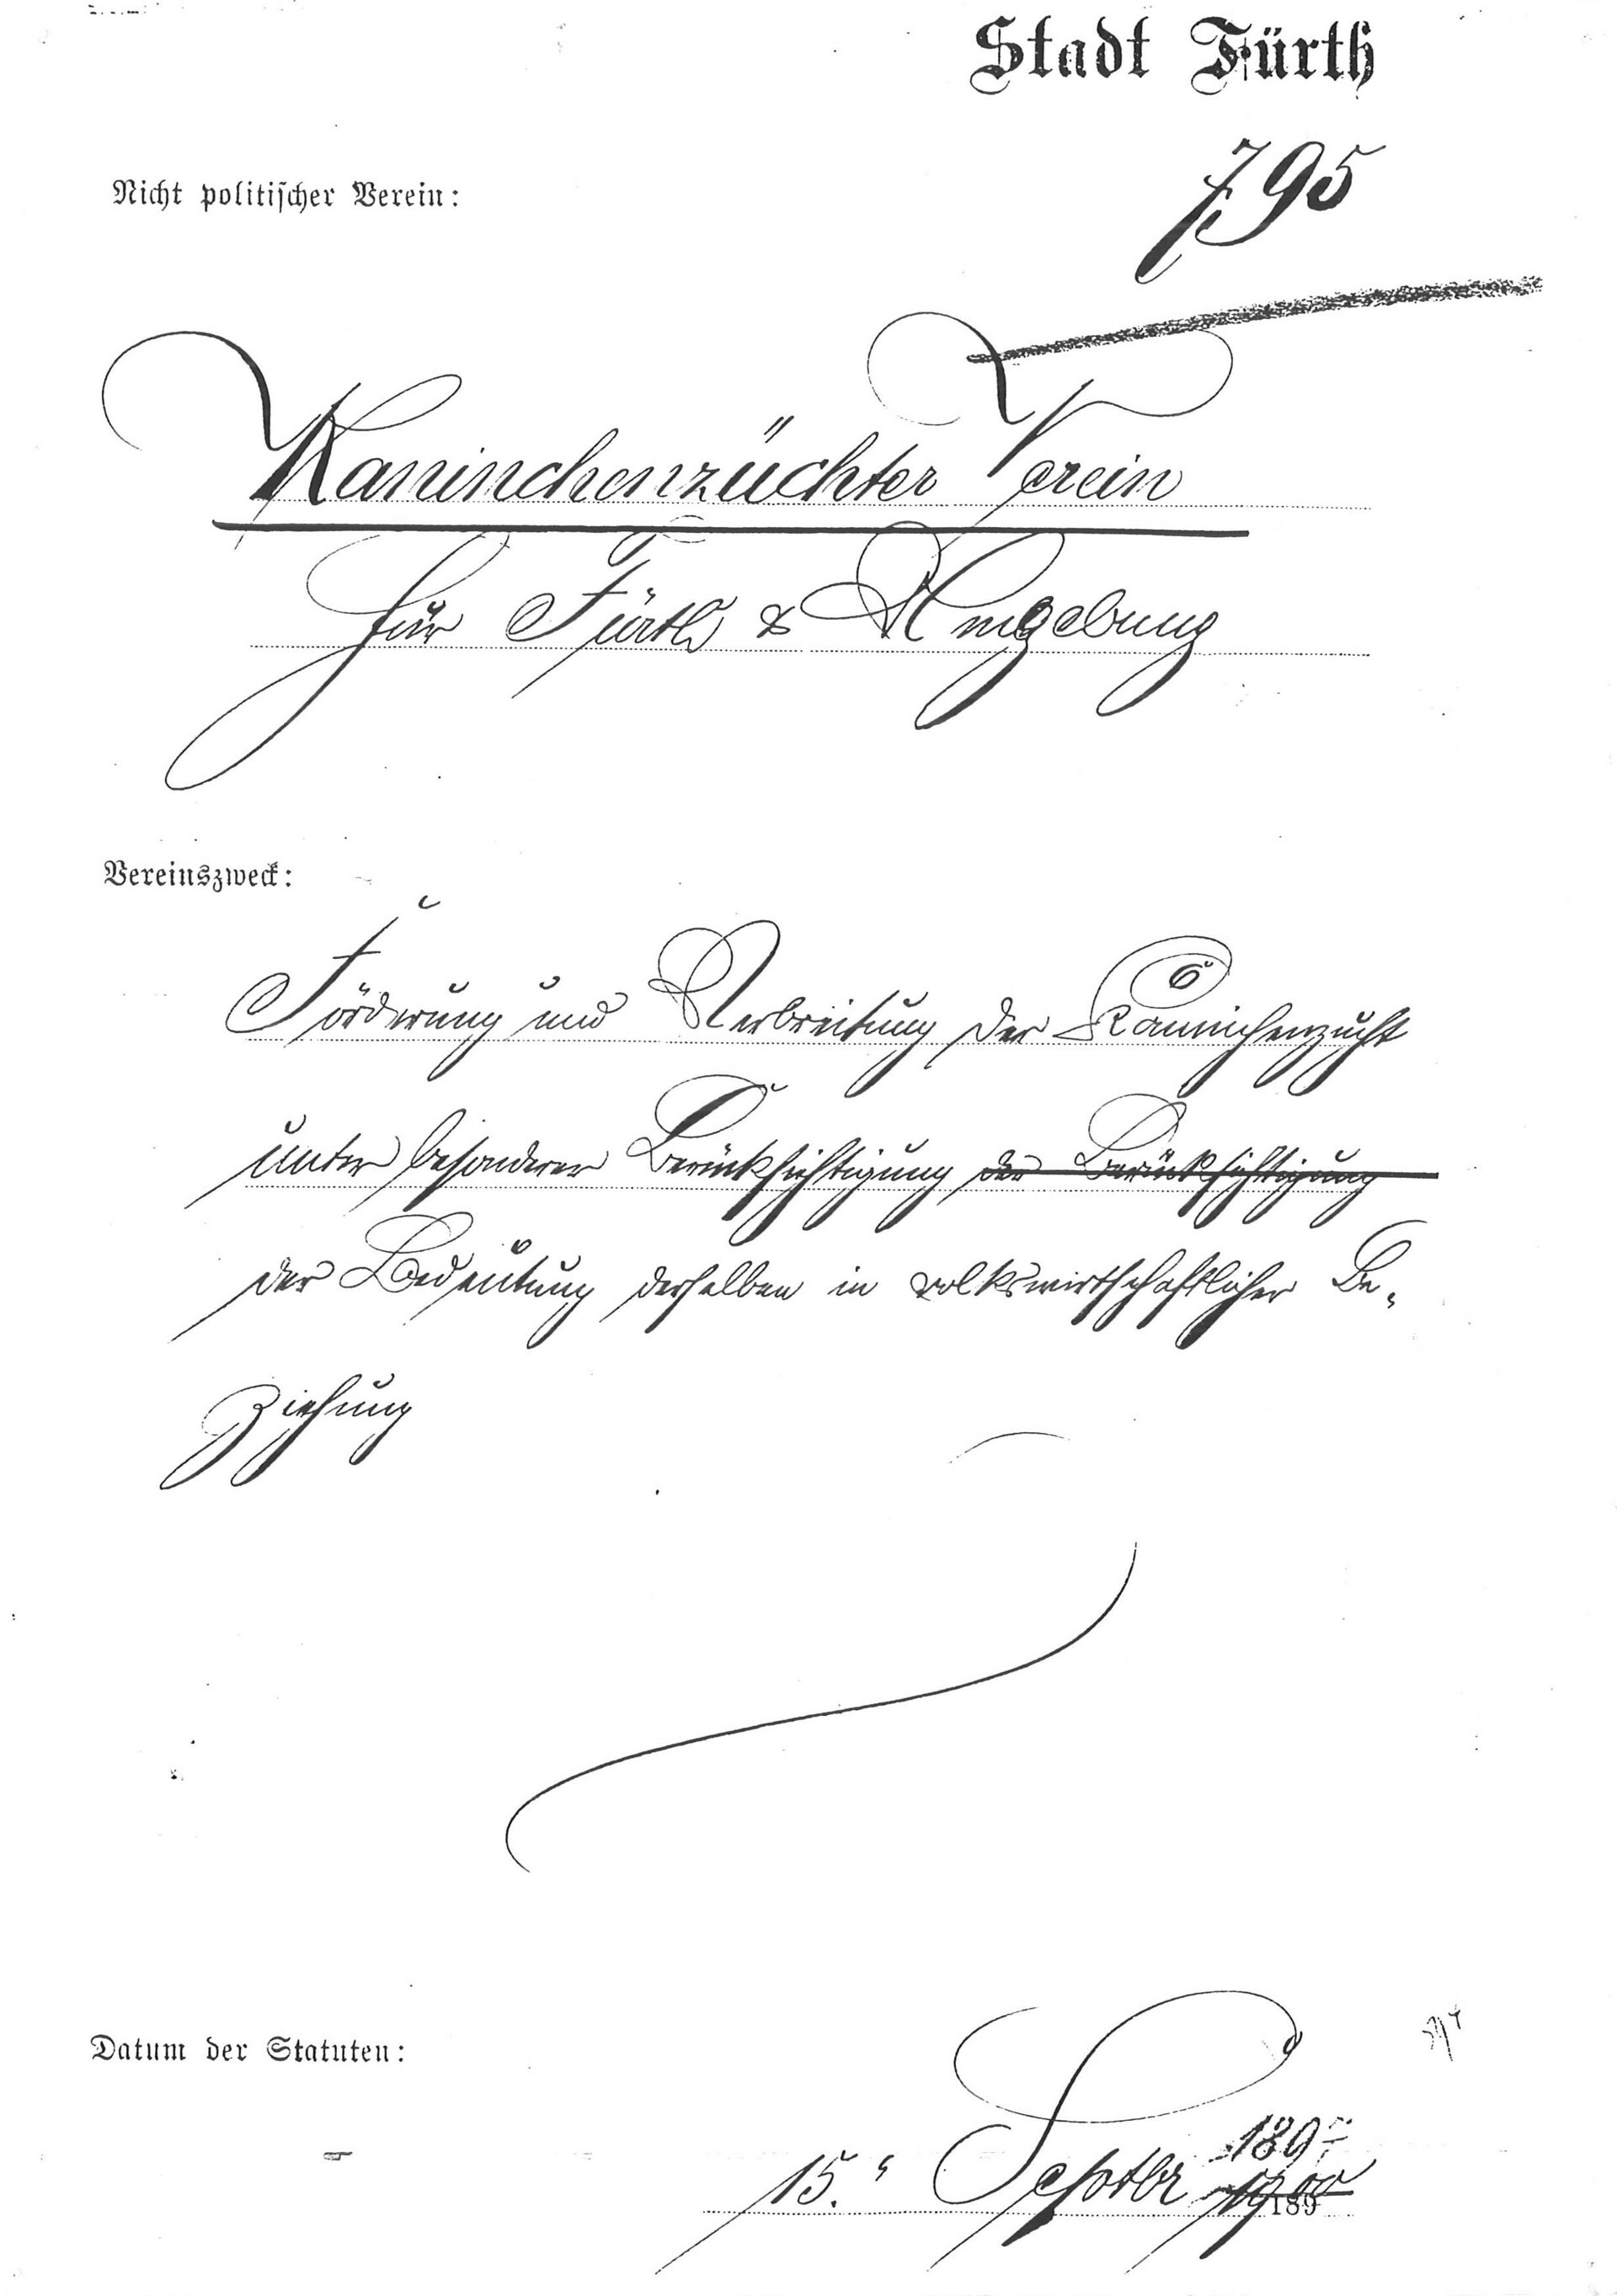 Stadt Fürth
Nicht politischer Verein:
795
Kaninchenzüchter Verein
für Fürth & Umgebung
Vereinszweck:
Förderung und Verbreitung der Kaninchenzucht
unter besonderer Berücksichtigung der Berücksichtigung
der Bedeutung derselben in volkswirthschaftlicher Be-
ziehung
Datum der Statuten:
15. Septbr 1900
189